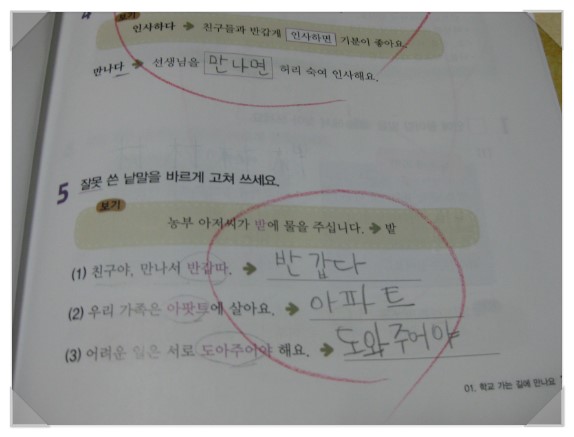 4
보기
인사하다 → 친구들과 반갑게 인사하면 기분이 좋아요.
만나다 → 선생님을 만나면 허리 숙여 인사해요.
5 잘못 쓴 낱말을 바르게 고쳐 쓰세요.
보기
농부 아저씨가 받에 물을 주십니다. → 밭
(1) 친구야, 만나서 반갑따. → 반갑다
(2) 우리 가족은 아팟트에 살아요. → 아파트
(3) 어려운 일은 서로 도아주어야 해요. → 도와주어야
01. 학교 가는 길에 만나요